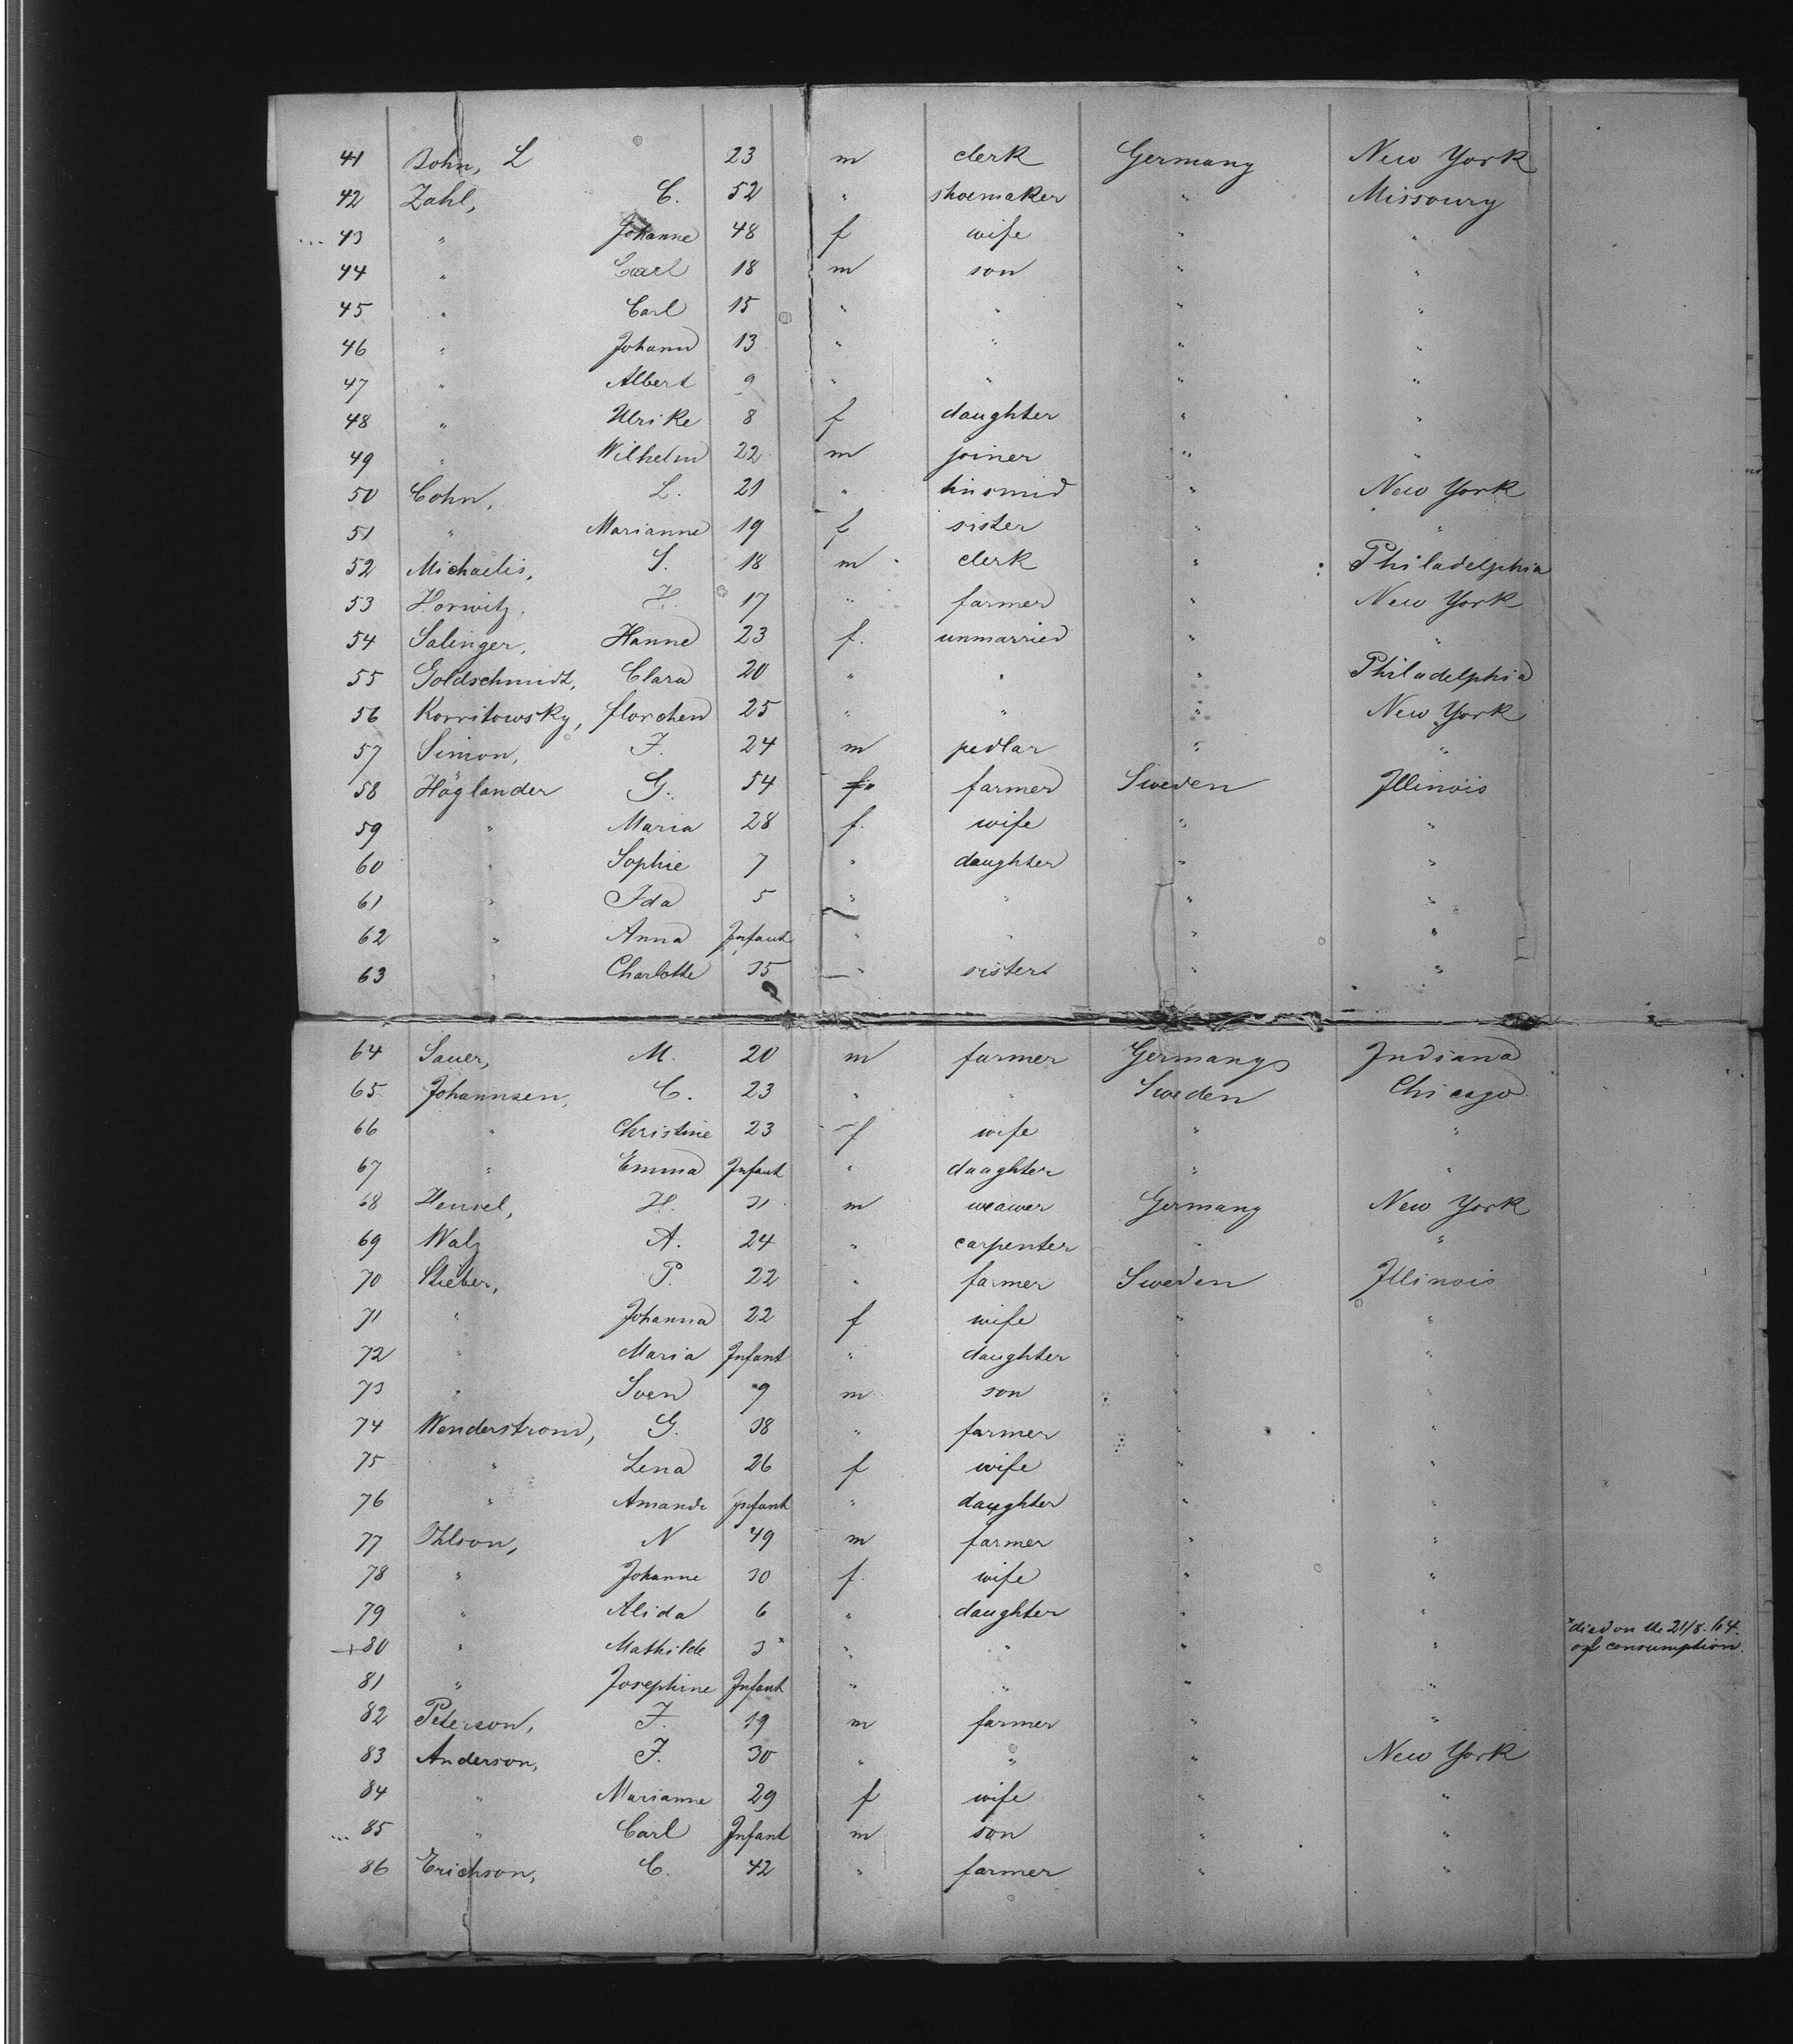 41 Bohn, L 23 m clerk Germany New York
42 Zahl, C. 52 " shoemaker " Missoury
43 " Johanne 48 f wife " "
44 " Carl 18 m son " "
45 " Carl 15 " " " "
46 " Johann 13 " " " "
47 " Albert 9 " " " "
48 " Ulrike 8 f daughter " "
49 " Wilhelm 22 m joiner " "
50 Cohn, L. 21 " tinsmid " New York
51 " Marianne 19 f sister " "
52 Michaelis, S. 18 m clerk " Philadelphia
53 Horwitz, H. 17 " farmer " New York
54 Salinger, Hanne 23 f. unmarried " "
55 Goldschmidt, Clara 20 " " " Philadelphia
56 Korritowsky, florchen 25 " " " New York
57 Simon, J. 24 m pedlar " "
58 Höglander G. 54 farmer Sweden Illinois
59 " Maria 28 f. wife " "
60 " Sophie 7 " daughter " "
61 " Ida 5 " " " "
62 " Anna Infant " " " "
63 " Charlotte 35 " sister " "
64 Sauer, M. 20 m farmer Germany Indiana
65 Johannsen, C. 23 " " Sweden Chicago
66 " Christine 23 f wife " "
67 " Emma Infant " daughter " "
68 Hensel, H. 31 m weawer Germany New York
69 Walz A. 24 " carpenter " "
70 Stieber, P. 22 " farmer Sweden Illinois
71 " Johanna 22 f wife " "
72 " Maria Infant " daughter " "
73 " Sven 9 m son " "
74 Wenderstrom, G. 38 " farmer " "
75 " Lena 26 f wife " "
76 " Amanda Infant " daughter " "
77 Ohlson, N 49 m farmer " "
78 " Johanne 30 f. wife " "
79 " Alida 6 " daughter " "
+80 " Mathilde 3* " " " " *died on the 21/8. 64. of consumption.
81 " Josephine Infant " " " "
82 Peterson, J. 19 m farmer " "
83 Anderson, J. 30 " " " New York
84 " Marianne 29 f wife " "
85 " Carl Infant m son " "
86 Erichson, C. 42 " farmer " "